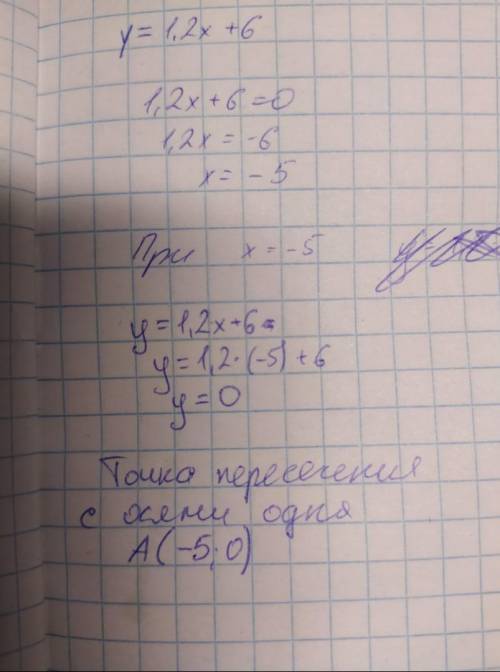 y = 1,2x + 6
1,2x + 6 = 0
1,2x = -6
x = -5
При x = -5
y = 1,2x + 6 =
y = 1,2 · (-5) + 6
y = 0
Точка пересечения
с осями одна
A (-5; 0)